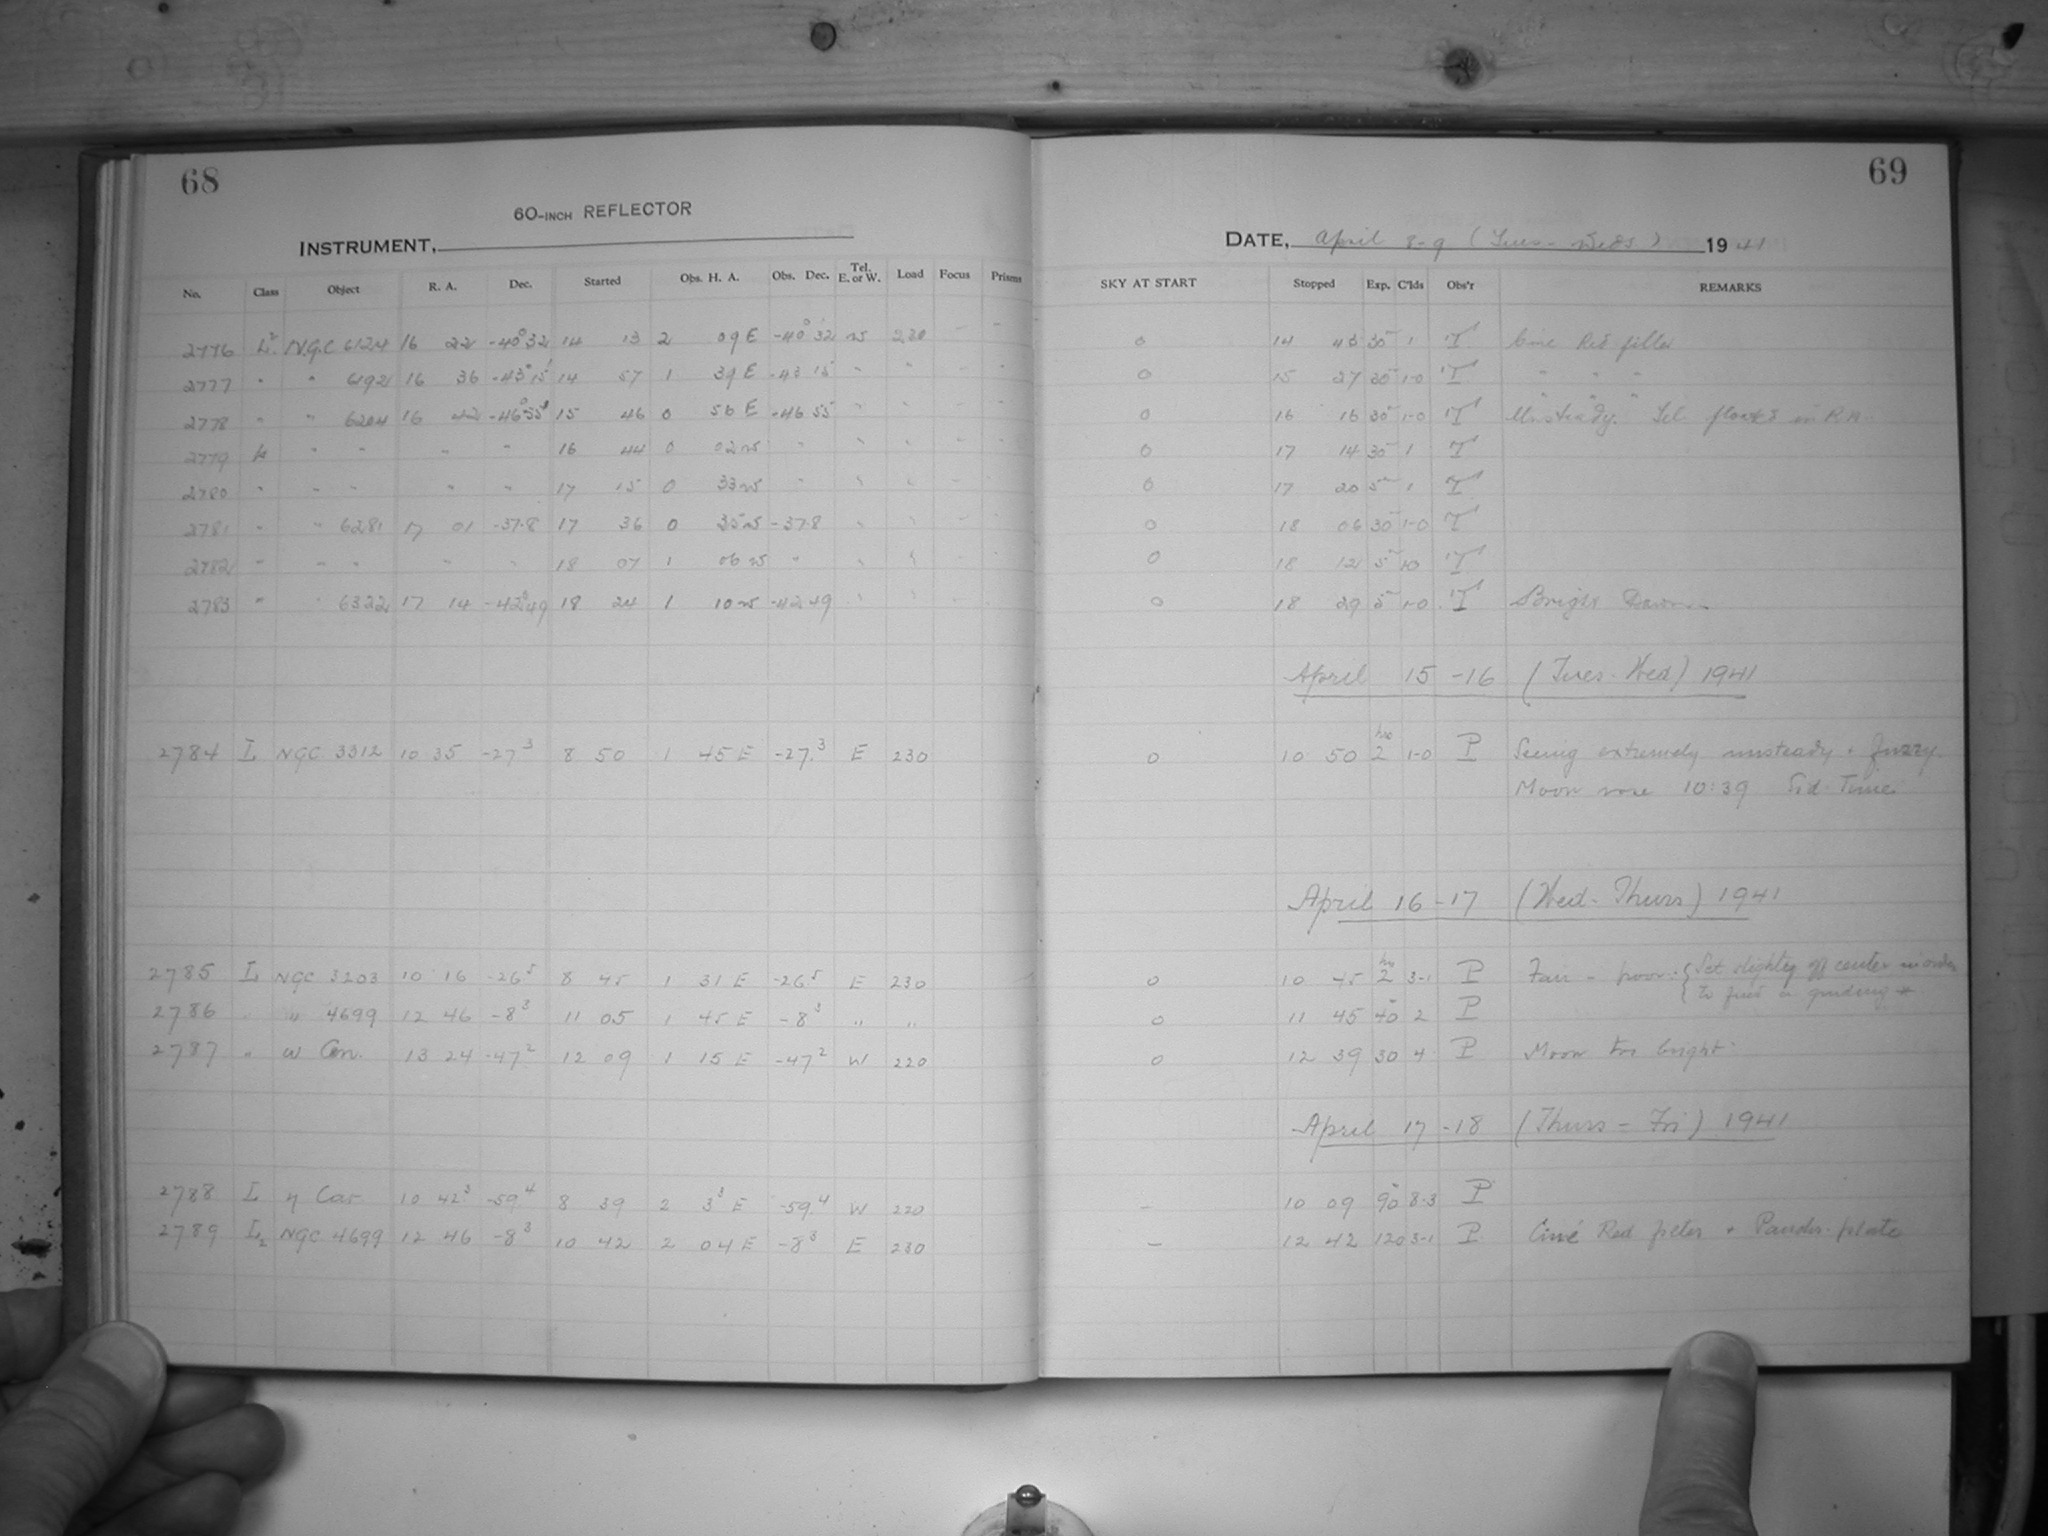 68
60-INCH REFLECTOR
INSTRUMENT,
No. Class Object R. A. Dec. Started Obs. H. A. Obs. Dec. Tel. E. or W. Load Focus Prisms
2776 L2 N.G.C 6124 16 22 -40°32 14 13 2 09 E -40°32 W 230 - -
2777 " " 6192 16 36 -43°15' 14 57 1 39 E -43 15 " "
2778 " " 6204 16 42 -46°55' 15 46 0 56 E -46 55 " "
2779 L " " " " 16 44 0 02 W " " "
2780 " " " " " 17 15 0 33 W " " "
2781 " " 6281 17 01 -37.8 17 36 0 35 W -37.8 " "
2782 " " " " " 18 07 1 06 W " " "
2783 " " 6322 17 14 -42°49 18 24 1 10 W -42 49 " "
2784 L NGC 3312 10 35 -27 3 8 50 1 45 E -27.3 E 230
2785 L NGC 3203 10 16 -26 5 8 45 1 31 E -26 5 E 230
2786 " " 4699 12 46 -8 3 11 05 1 45 E -8 3 " "
2787 " ω Cen. 13 24 -47 2 12 09 1 15 E -47 2 W 220
2788 L η Car 10 42 3 -59.4 8 39 2 3 3 E -59.4 W 220
2789 L2 NGC 4699 12 46 -8 3 10 42 2 04 E -8 3 E 230
69
DATE, April 8-9 (Tues - Weds) 1941
SKY AT START Stopped Exp. C'lds Obs'r REMARKS
0 14 43 30 1 T Cine Red filter
0 15 27 30 1-0 T " " "
0 16 16 30 1-0 T Unsteady. Tel. floats in R.A.
0 17 14 30 1 T
0 17 20 5 1 T
0 18 06 30 1-0 T
0 18 12 5 1-0 T
0 18 29 5 1-0 T Bright Dawn
April 15-16 (Tues-Wed) 1941
0 10 50 2 hrs 1-0 P Seeing extremely unsteady + fuzzy.
Moon rose 10:39 Sid. Time
April 16-17 (Wed-Thurs) 1941
0 10 45 2 hrs 3-1 P Fair - poor. { Set slightly off center in order
to find a guiding *
0 11 45 40 2 P
0 12 39 30 4 P Moon too bright
April 17-18 (Thurs-Fri) 1941
- 10 09 90 8-3 P
- 12 42 120 3-1 P Ciné Red filter + Panchr. plate